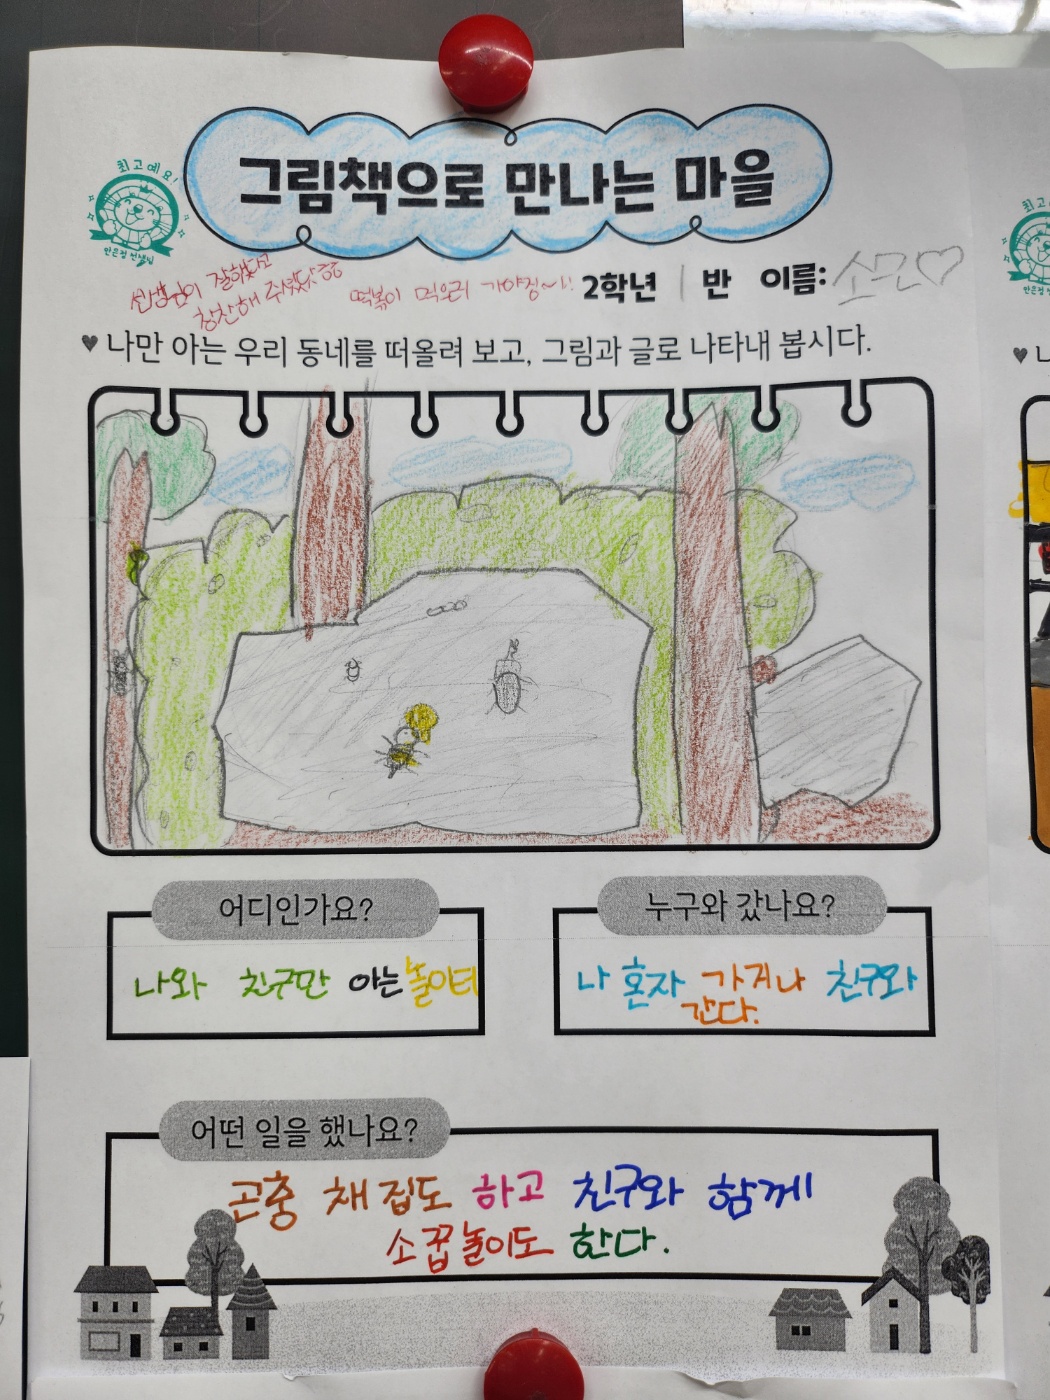 그림책으로 만나는 마을
최고예요!
안은정 선생님
선생님이 잘했다고
칭찬해 주셨다
떡볶이 먹으러 가야징~!!
2학년 | 반 이름: 소민♡
♥ 나만 아는 우리 동네를 떠올려 보고, 그림과 글로 나타내 봅시다.
어디인가요?
나와 친구만 아는 놀이터
누구와 갔나요?
나 혼자 가거나 친구와
간다.
어떤 일을 했나요?
곤충 채집도 하고 친구와 함께
소꿉놀이도 한다.